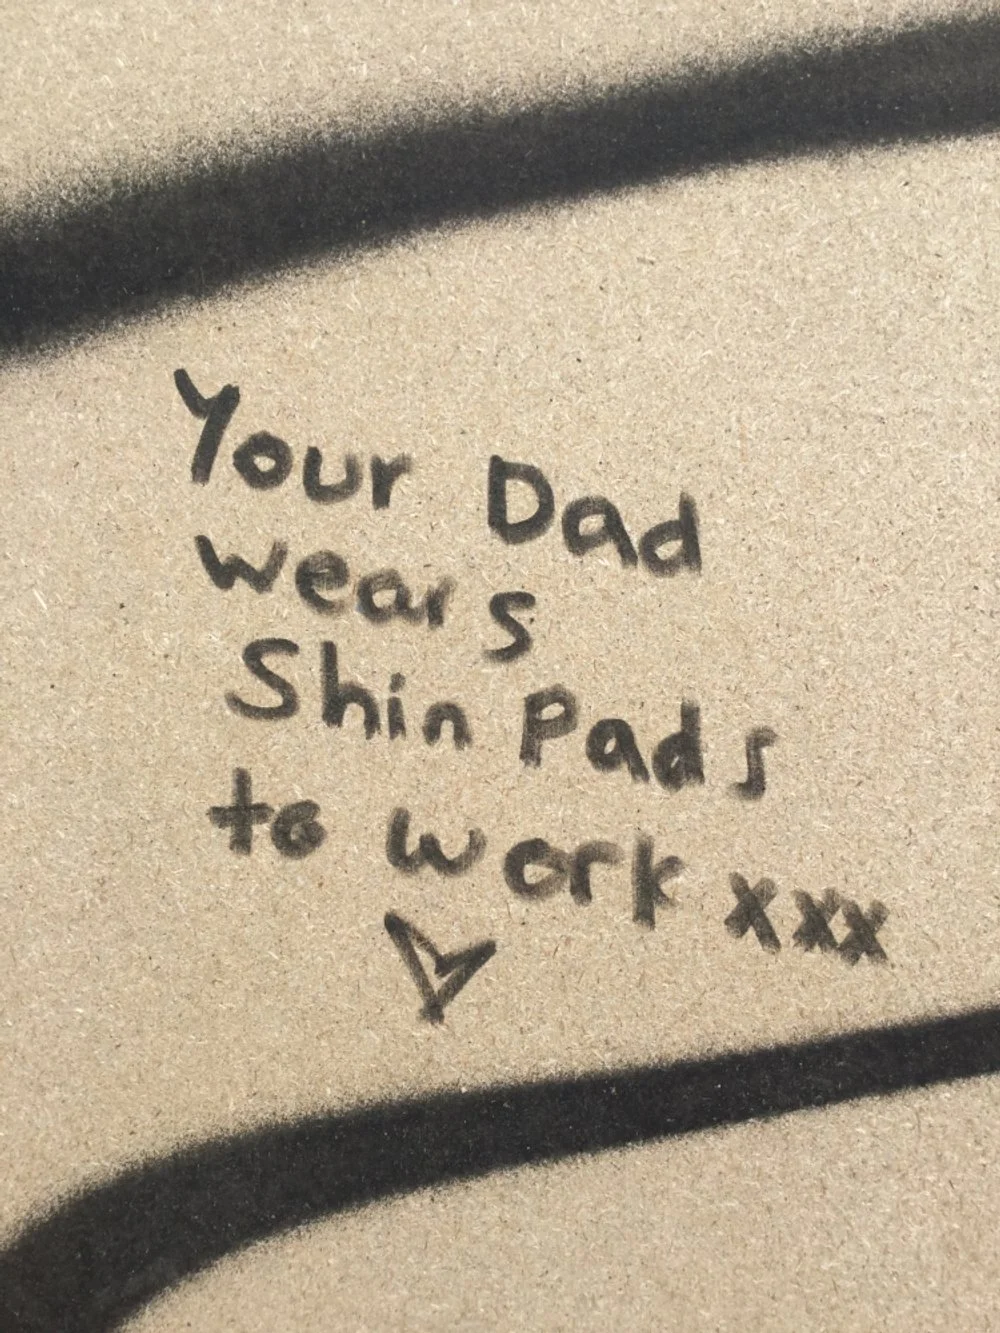 Your Dad
wears
Shin Pads
to work xxx